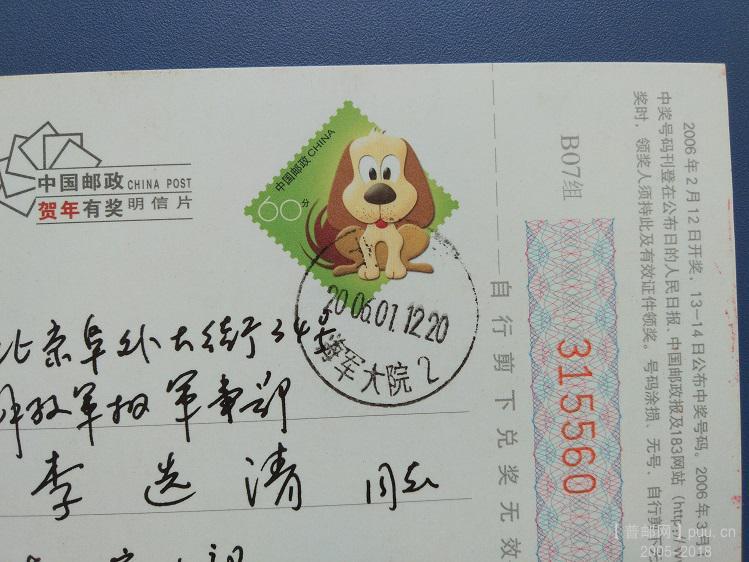 中国邮政 CHINA POST
贺年有奖明信片
中国邮政 CHINA
60分
2006.01.12.20
海军大院 2
北京阜外大街34号
解放军报军事部
李选清 同志
自行剪下兑奖无效
B07组
315560
2006年2月12日开奖，13-14日公布中奖号码。2006年3月
中奖号码刊登在公布日的人民日报、中国邮政报及183网站（http://
奖时，领奖人须持此及有效证件领奖。号码涂损、无号、自行剪下
【普邮网】puu.cn
2005-2018